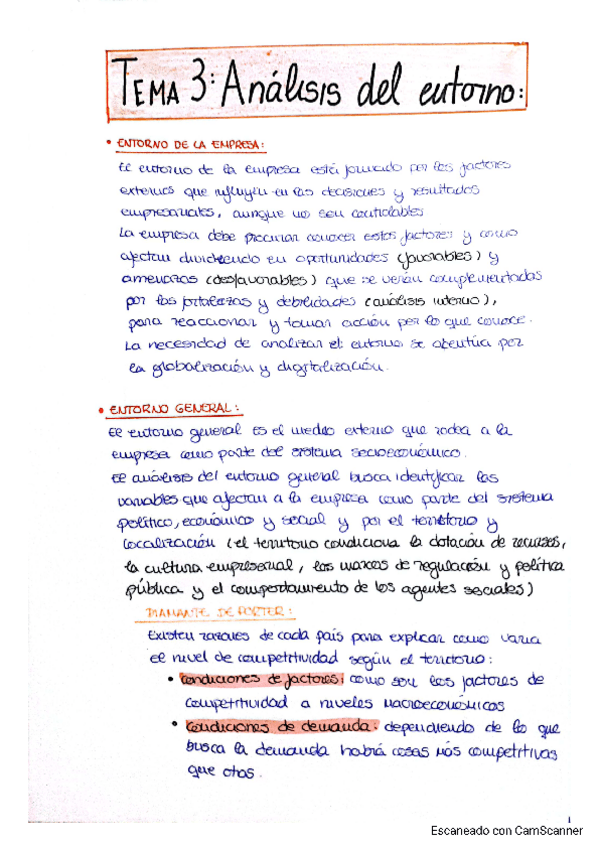 TEMA 3: Análisis del entorno:
• ENTORNO DE LA EMPRESA:
El entorno de la empresa está formado por los factores
externos que influyen en las decisiones y resultados
empresariales, aunque no son controlables
La empresa debe procurar conocer estos factores y como
afectan dividiendo en oportunidades (favorables) y
amenazas (desfavorables) que se verán complementadas
por las fortalezas y debilidades (análisis interno),
para reaccionar y tomar acción por lo que conoce.
La necesidad de analizar el entorno se acentúa por
la globalización y digitalización.
• ENTORNO GENERAL:
El entorno general es el medio externo que rodea a la
empresa como parte del sistema socioeconómico.
El análisis del entorno general busca identificar las
variables que afectan a la empresa como parte del sistema
político, económico y social y por el territorio y
localización (el territorio condiciona la dotación de recursos,
la cultura empresarial, los marcos de regulación y política
pública y el comportamiento de los agentes sociales)
DIAMANTE DE PORTER:
Existen razones de cada país para explicar como varia
el nivel de competitividad según el territorio:
• Condiciones de factores: como son los factores de
competitividad a niveles macroeconómicos
• Condiciones de demanda: dependiendo de lo que
busca la demanda habrá cosas más competitivas
que otas.
1
Escaneado con CamScanner